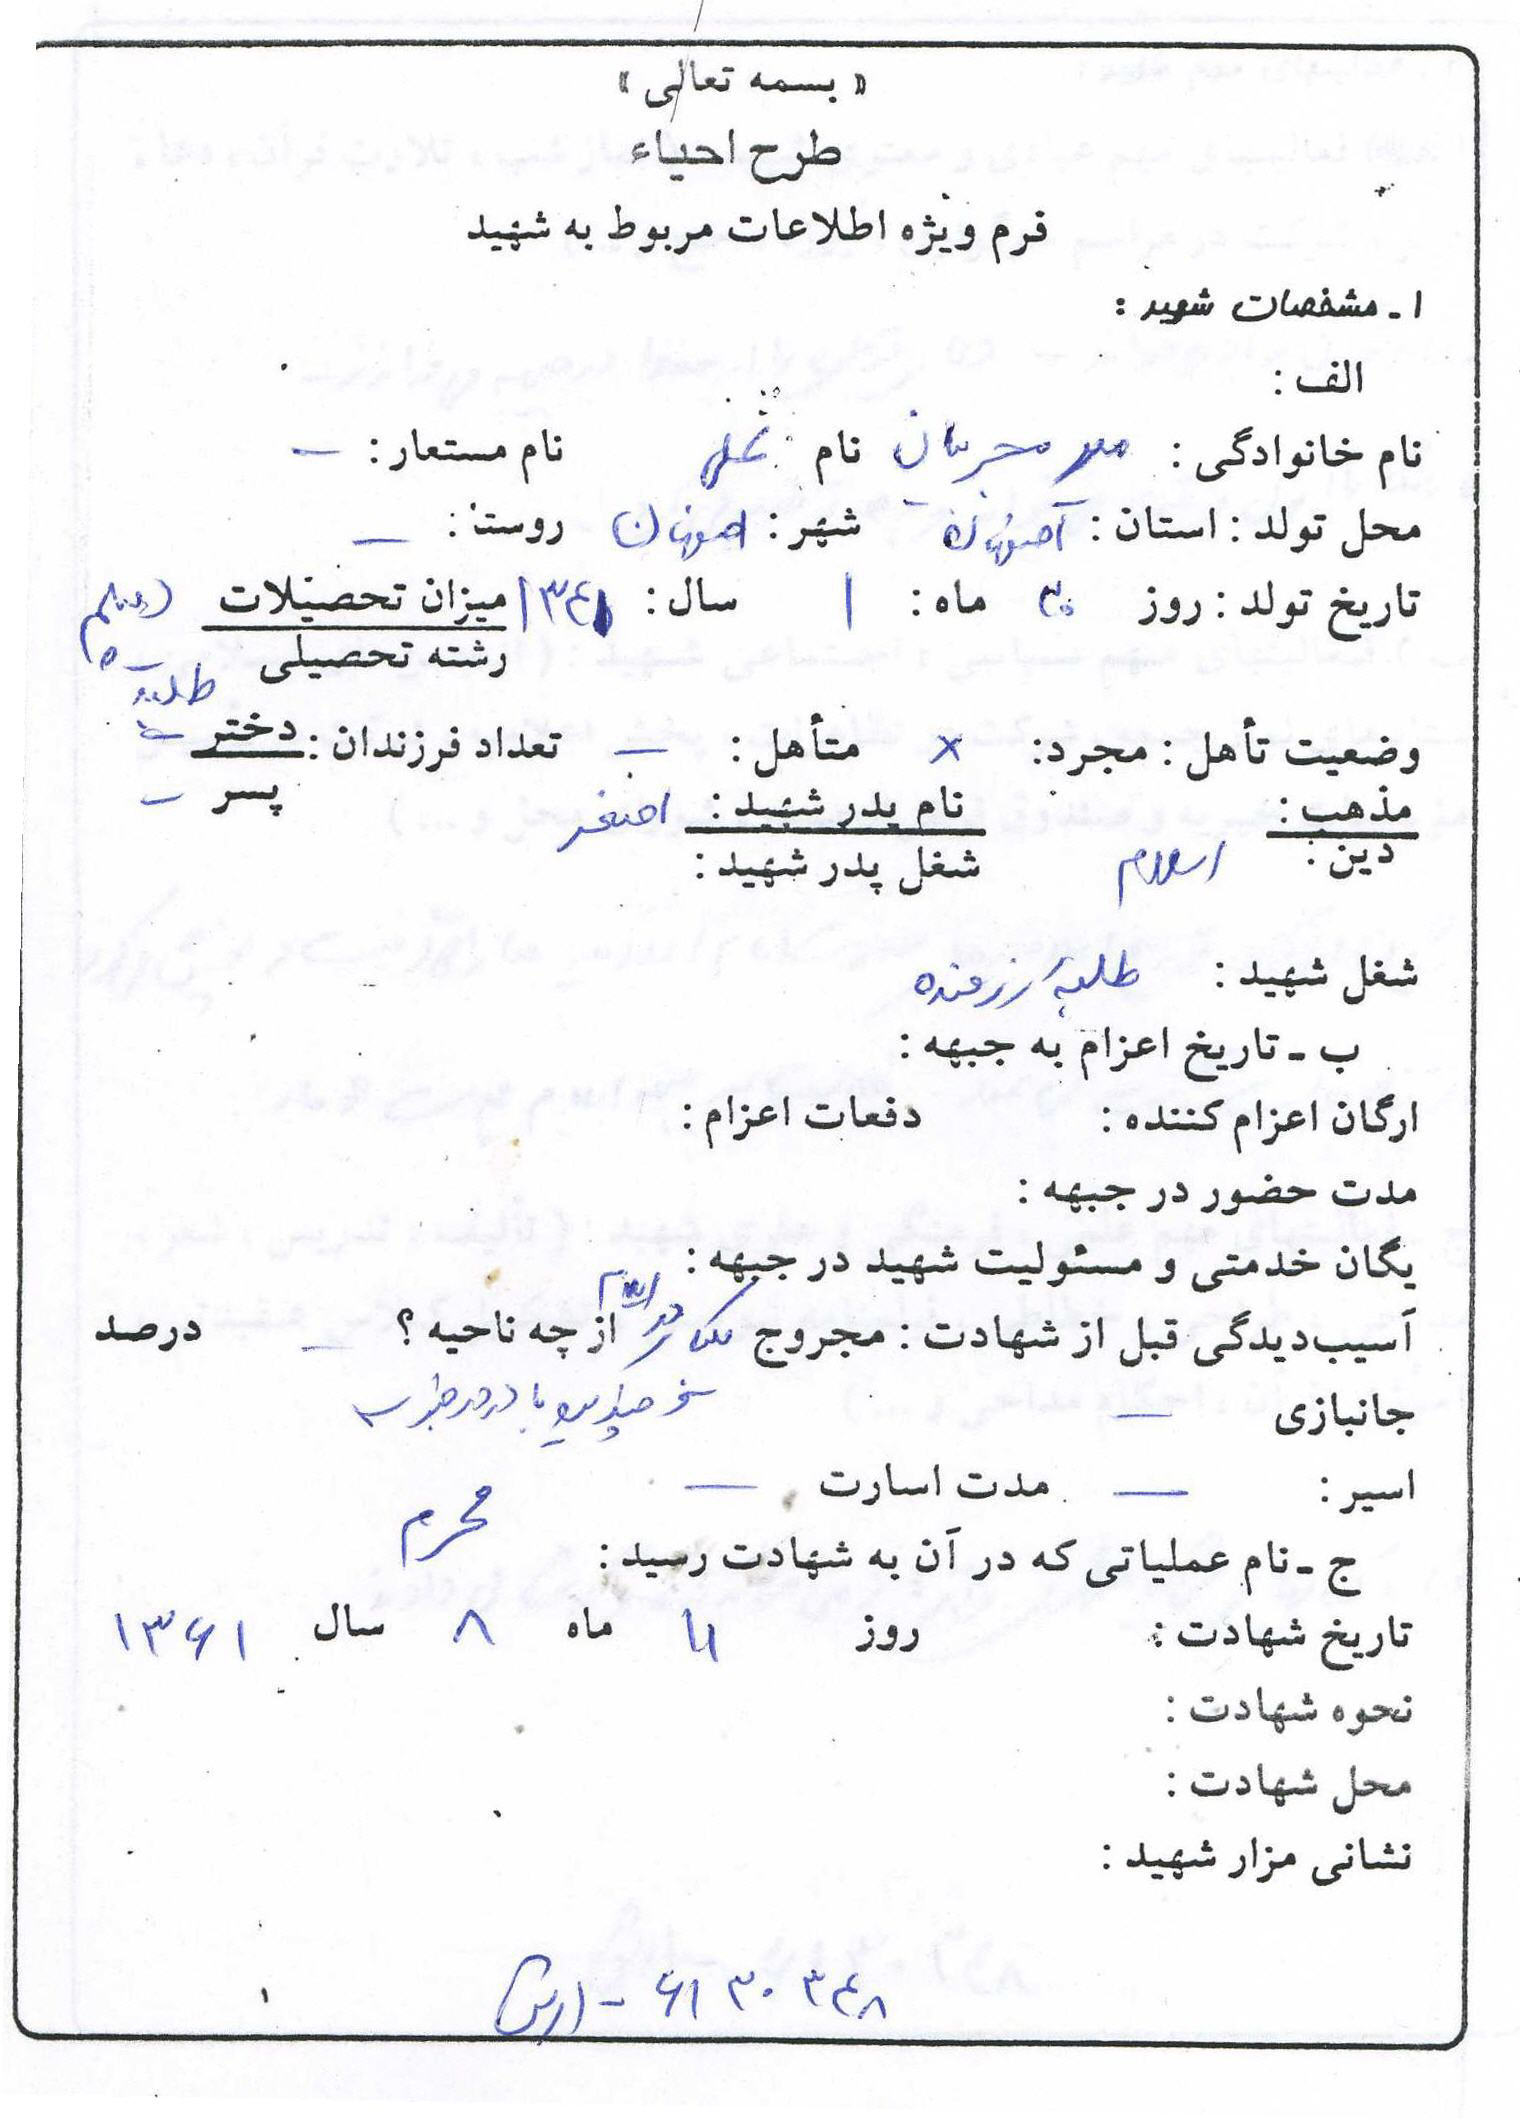 « بسمه تعالی »
طرح احیاء
فرم ویژه اطلاعات مربوط به شهید
۱ ـ مشخصات شهید :
الف :
نام خانوادگی : نام : علی نام مستعار : —
محل تولد : استان : اصفهان شهر : اصفهان روستا : —
تاریخ تولد : روز ۳۰ ماه : ۱ سال : ۱۳۴۱ میزان تحصیلات دیپلم
رشته تحصیلی طلبه
وضعیت تأهل : مجرد : × متأهل : — تعداد فرزندان : دختر —
پسر —
مذهب : نام پدر شهید : اصغر
دین : اسلام شغل پدر شهید :
شغل شهید : طلبه رزمنده
ب ـ تاریخ اعزام به جبهه :
ارگان اعزام کننده : دفعات اعزام :
مدت حضور در جبهه :
یگان خدمتی و مسئولیت شهید در جبهه :
آسیب‌دیدگی قبل از شهادت : مجروح از چه ناحیه ؟ — درصد
جانبازی —
اسیر : — مدت اسارت —
ج ـ نام عملیاتی که در آن به شهادت رسید : محرم
تاریخ شهادت : روز ۱۱ ماه ۸ سال ۱۳۶۱
نحوه شهادت :
محل شهادت :
نشانی مزار شهید :
۶۱۳۰۳۴۸ -
۱